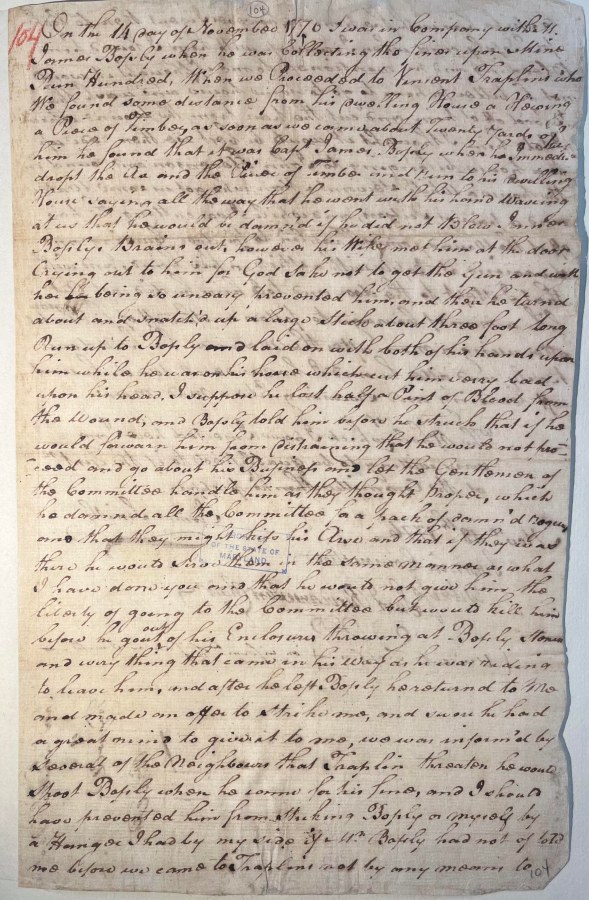 104
104
On the 14 day of November 1776 I was in Company with M.
James Bosly when he was Collecting the fines upon Mine
Run Hundred, When we Proceeded to Vincent Traplins who
We found some distance from his Dwelling House a Hewing
a Piece of Timber, as soon as we came about Twenty Yards of
him he found that it was Capt James Bosly when he Immedi=
dropt the Ax and the Piece of Timber and Run to his Dwelling
House saying all the way that he went with his hand Waveing
at us that he would be damn'd if he did not Blow James
Boslys Brains out, however his Wife met him at the door
Crying out to him for God Sake not to get the Gun and with
her being so uneasy prevented him, and then he turnd
about and snatch'd up a large Stick about three foot long
Run up to Bosly and laid on with both of his hands upon
him while he was on his horse which cut him very bad
upon his head, I suppose he lost half a Pint of Blood from
the Wound, and Bosly told him before he struck that if he
would forwarn him from distraining that he would not pro=
ceed and go about his Business and let the Gentlemen of
the Committee handle him as they thought Proper, which
he damned all the Committee for a pack of damn'd rogues
and that they might kiss his Arse and that if they was
there he would serve them in the same manner as what
I have done you and that he would not give him the
liberty of going to the Committee but would kill him
before he gout out of his Enclosures throwing at Bosly Stones
and every thing that came in his way as he was riding
to leave him, and after he left Bosly he returnd to Me
and made an offer to strike me, and swore he had
a great mind to give it to me, we was inform'd by
Several of the Neighbours that Traplin threaten he would
Shoot Bosly when he come for his fines, and I should
have prevented him from striking Bosly or myself by
a Hanger I had by my side if Mr Bosly had not of told
me before we came to Traplins not by any means to
104
OF THE STATE OF
MARYLAND